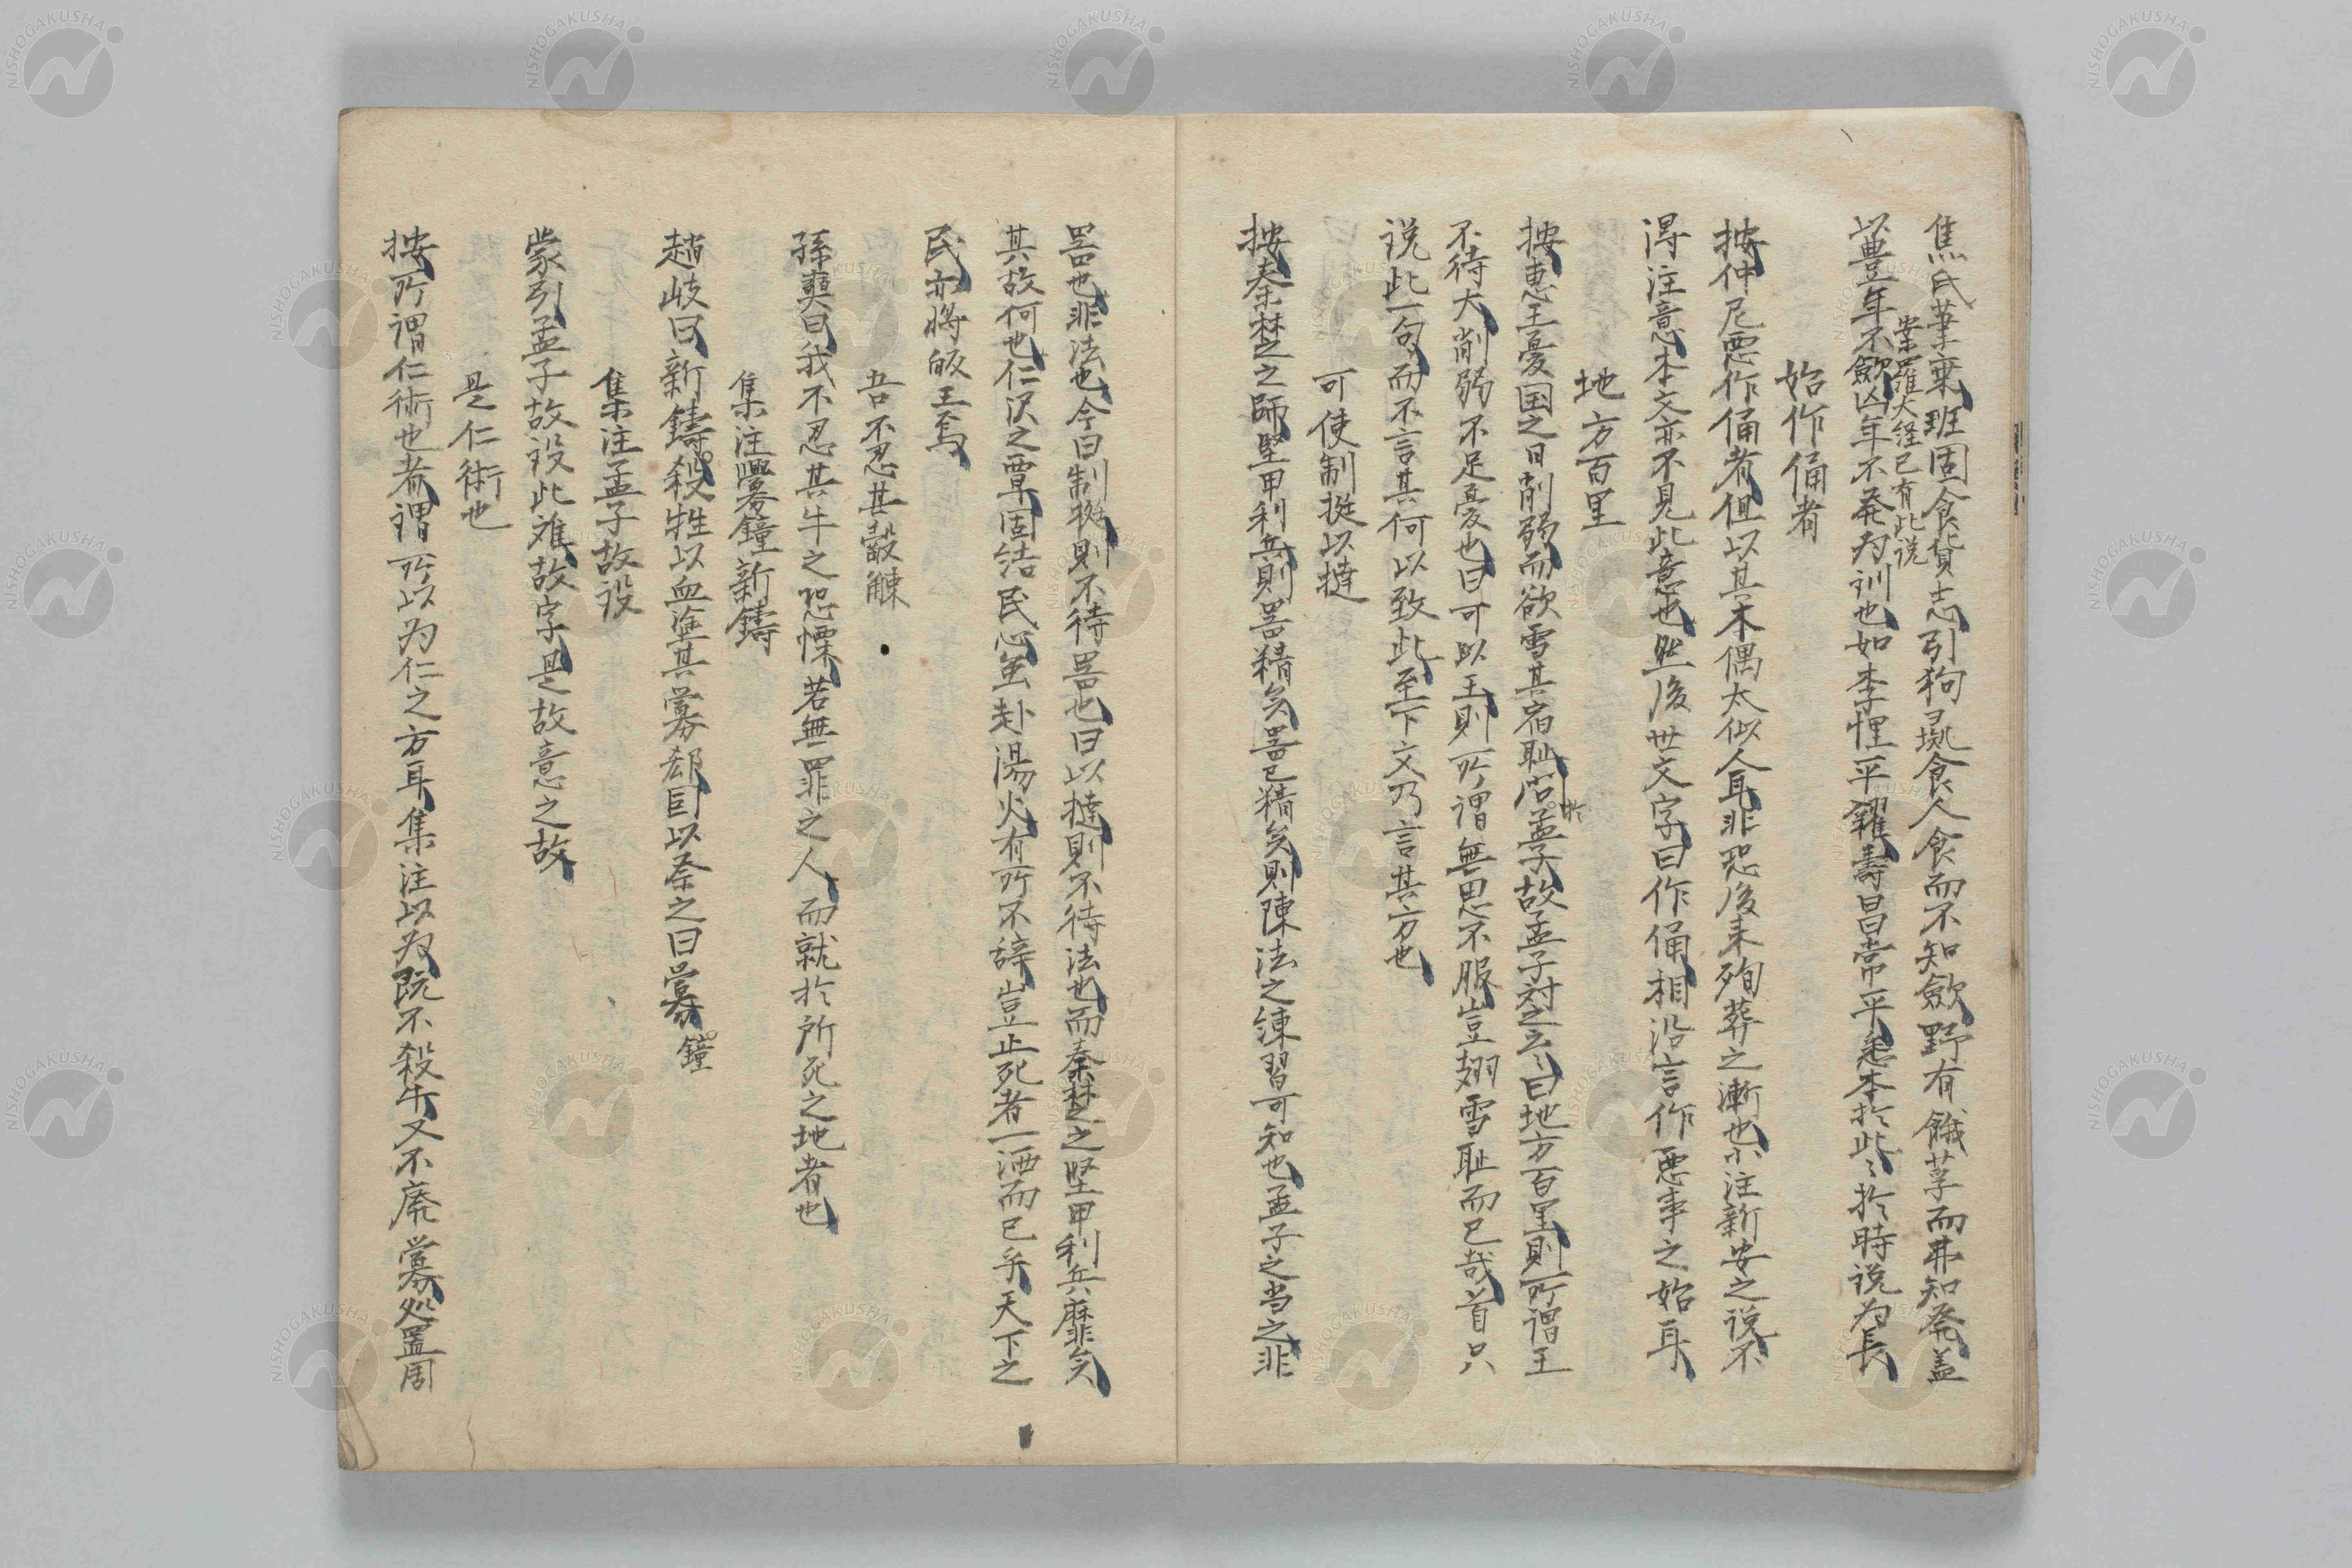 焦氏筆乗班固食貨志引狗彘食人食而不知歛野有餓莩而弗知発盖
按羅大経已有此説
以豊年不歛凶年不発為訓也如李悝平糴壽昌常平悉本於此〻於時説為長
始作俑者
按仲尼悪作俑者但以其木偶太似人耳非恐後来殉葬之漸也小注新安之説不
得注意本文亦不見此意也然後世文字曰作俑相沿言作悪事之始耳
地方百里
按恵王憂国之日削弱而欲雪其宿耻問於孟子故孟子対之云〻曰地方百里則所謂王
不待大削弱不足憂也曰可以王則所謂無思不服豈翅雪耻而已哉首只
説此一句而不言其何以致此至下文乃言其方也
可使制挺以撻
按秦楚之師堅甲利兵則噐精矣噐已精矣則陳法之錬習可知也孟子之当之非
噐也非法也今曰制挺則不待噐也曰以撻則不待法也而秦楚之堅甲利兵靡矣
其故何也仁沢之覃固結民心虽赴湯火有所不辞豈止死者一洒而已乎天下之
民亦将皈王焉
吾不忍其觳觫
孫奭曰我不忍其牛之恐慄若無罪之人而就於所死之地者也
集注釁鐘新鑄
趙岐曰新鑄殺牲以血塗其釁郄因以祭之曰釁鐘
集注孟子故設
蒙引孟子故設此难故字是故意之故
是仁術也
按所謂仁術也者謂所以為仁之方耳集注以為既不殺牛又不廃釁処置周